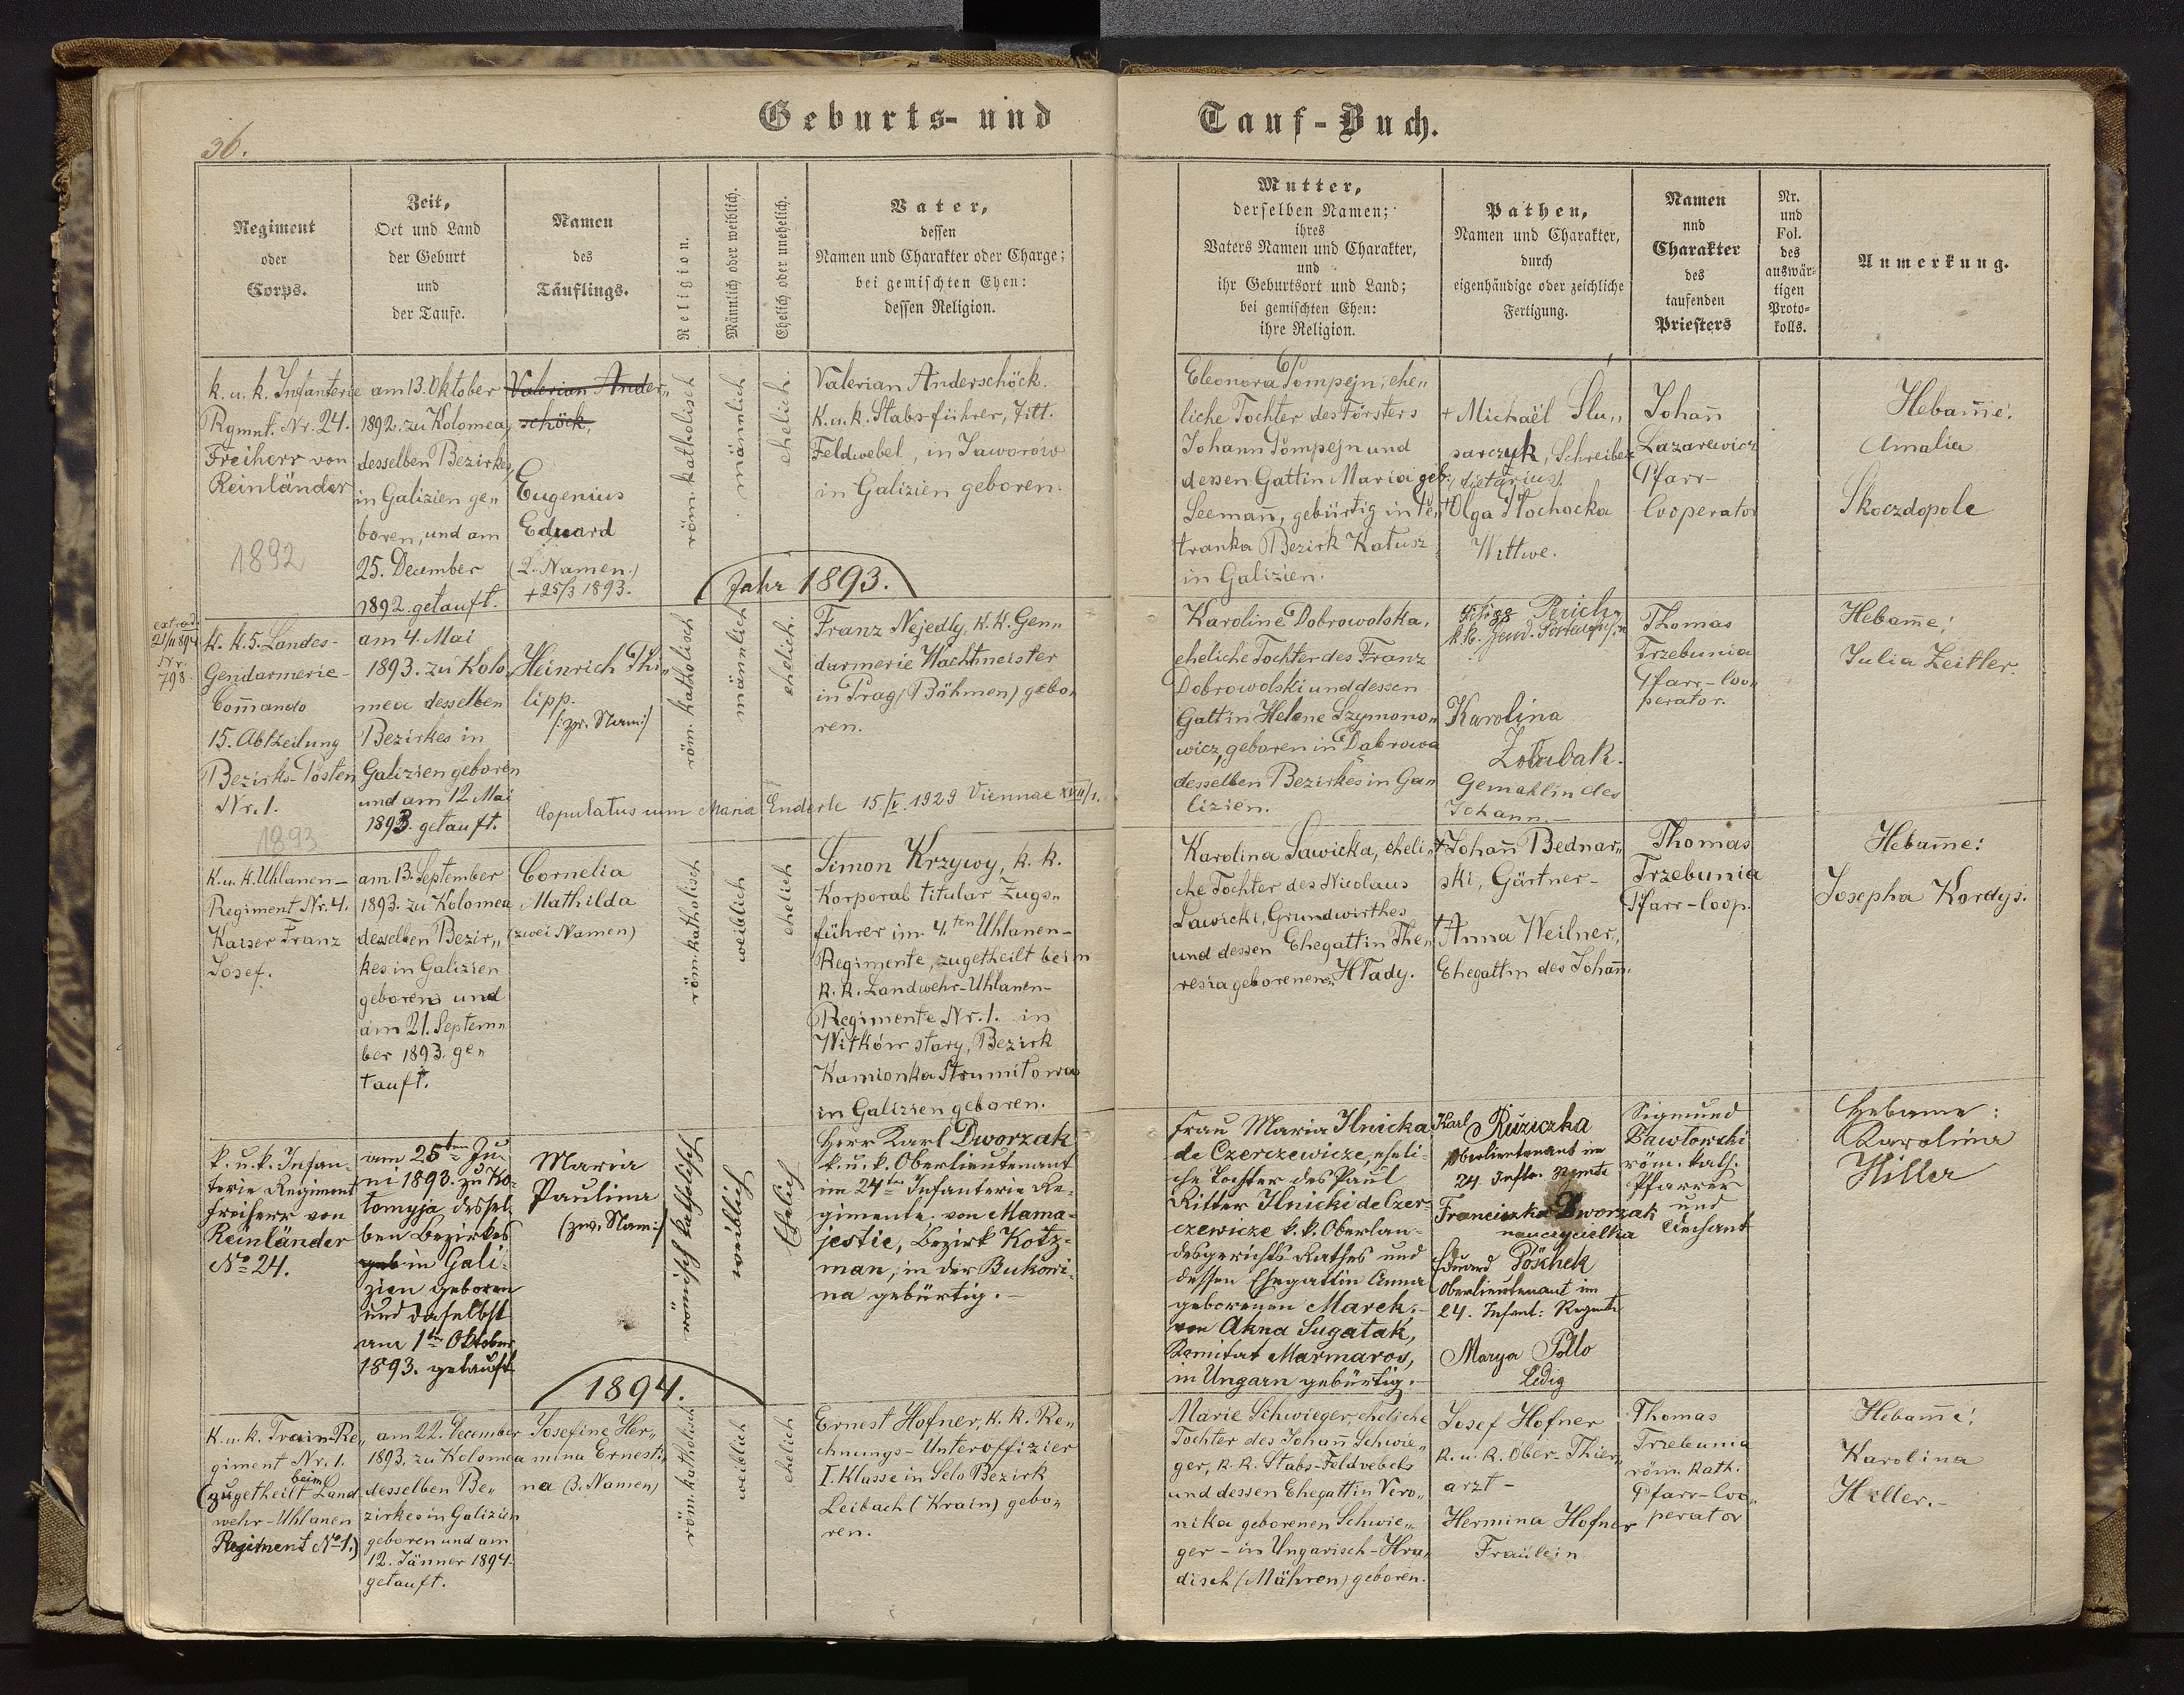 Geburts- und Tauf-Buch.
36.
Regiment
oder
Corps.
Zeit,
Ort und Land
der Geburt
und
der Taufe.
Namen
des
Täuflings.
Religion.
Männlich oder weiblich.
Ehelich oder unehelich.
Vater,
dessen
Namen und Charakter oder Charge;
bei gemischten Ehen:
dessen Religion.
Mutter,
derselben Namen;
ihres
Vaters Namen und Charakter,
und
ihr Geburtsort und Land;
bei gemischten Ehen:
ihre Religion.
Pathen,
Namen und Charakter,
durch
eigenhändige oder zeichliche
Fertigung.
Namen
und
Charakter
des
taufenden
Priesters
Nr.
und
Fol.
des
auswär-
tigen
Proto-
kolls.
Anmerkung.
k. u. k. Infanterie
Rgmnt. Nr. 24.
Freiherr von
Reinländer
1892
am 13. Oktober
1892. zu Kolomea,
desselben Bezirkes,
in Galizien ge„
boren, und am
25. December
1892. getauft.
Valerian Ander„
schöck,
Eugenius
Eduard
(2. Namen.)
+ 25/3 1893.
röm. katholisch
männlich
ehelich.
Valerian Anderschöck.
K. u. k. Stabs-führer, Titt.
Feldwebel, in Jaworów
in Galizien geboren.
Eleonora Pompejn, ehe„
liche Tochter des Försters
Johann Pompejn und
dessen Gattin Maria geb.
Seemañ, gebürtig in Pe„
tranka Bezirk Kałusz
in Galizien.
+ Michaël Slu„
sarczyk, Schreiber
(dietarius)
+ Olga Płochocka
Wittwe.
Johañ
Lazarewicz
Pfarr-
Cooperator
Hebam̄e:
Amalia
Skoczdopole
Jahr 1893.
extrad.
21/II 894
Nr.
798.
k. k. 5. Landes-
Gendarmerie-
Com̄ando
15. Abtheilung
Bezirks-Posten
Nr. 1.
1893
am 4. Mai
1893. zu Kolo„
mea desselben
Bezirkes in
Galizien geboren
und am 12 Mai
1893. getauft.
Heinrich Phi„
lipp.
/: zw. Nam :/
röm. katholisch
männlich
ehelich.
Franz Nejedly, K. K. Gen„
darmerie Wachtmeister
in Prag, (Böhmen) gebo„
ren.
Copulatus cum Maria Enderle 15./V. 1929 Viennae XVIII/1.
Karoline Dobrowolska,
eheliche Tochter des Franz
Dobrowolski und dessen
Gattin Helene Szymono„
wicz, geboren in Dąbrowa
desselben Bezirkes in Ga„
lizien.
Karolina
Gemahlin des
Johann.—
Thomas
Trzebunia
Pfarr-Coo„
perator.
Hebam̄e:
Julia Zeitler.
K. u. K. Uhlanen-
Regiment Nr. 4.
Kaiser Franz
Josef.
am 13. September
1893. zu Kolomea
desselben Bezir„
kes in Galizien
geboren und
am 21. Septem„
ber 1893. ge„
tauft.
Cornelia
Mathilda
(zwei Namen)
röm. katholisch
weiblich
ehelich
Simon Krzywy, k. k.
Korporal titular Zugs„
führer im 4.ten Uhlanen-
Regimente, zugetheilt beim
K. K. Landwehr-Uhlanen-
Regimente Nr. 1. in
Witków stary, Bezirk
Kamionka Strumiłowa
in Galizien geboren.
Karolina Sawicka, eheli„
che Tochter des Nicolaus
Sawicki, Grundwirthes
und dessen Ehegattin The„
resia geborenen Hłady.
+ Johañ Bednar„
ski, Gärtner-
+ Anna Weilner„
Ehegattin des Johañ.
Thomas
Trzebunia
Pfarr-Coop.
Hebam̄e:
Josepha Kordys.
k. u. k. Infan-
terie Regiment
Freiherr von
Reinländer
No 24.
am 25ten Ju-
ni 1893. zu Ko-
łomyja dessel-
ben Bezirkes
geb in Gali-
zien geboren
und daselbst
am 1ten Oktober
1893. getauft
Maria
Paulina
(zw. Nam:)
römisch katholisch
weiblich
Ehelich
Herr Karl Dworzak
k. u. k. Oberlieutenant
im 24ten Infanterie Re-
gimente. von Mama-
jestie, Bezirk Kotz-
man, in der Bukowi-
na gebürtig.—
Frau Maria Ilnicka
de Czerczewicze, eheli-
che Tochter des Paul
Ritter Ilnicki de Czer-
czewicze k. k. Oberlan-
desgerichts-Rathes und
dessen Ehegattin Anna
geborenen Marek.—
von Akna Sugatak,
Komitat Marmaros,
in Ungarn gebürtig.—
Karl Ružiczka
Oberlieutenant im
24. Inftr. Rgmte
Franciszka Dworzak
nauczycielka
Eduard Pöschek
Oberlieutenant im
24. Infant: Regmte
Marya Pollo
ledig
Sigmund
Pawłowski
röm. kath.
Pfarrer
und
Dechant
Hebame:
Karolina
Hiller
1894.
K. u. k. Train-Re„
giment Nr. 1.
(zugetheilt beim Land-
wehr-Uhlanen
Regiment No 1.)
am 22. December
1893. zu Kolomea
desselben Be„
zirkes in Galizien
geboren und am
12. Jänner 1894.
getauft.
Josefine Her„
mina Ernesti„
na (3. Namen)
röm. katholisch
weiblich
ehelich
Ernest Hofner, K. K. Re„
chnungs-Unteroffizier
I. Klasse in Selo Bezirk
Leibach (Krain) gebo„
ren.
Marie Schwieger, eheliche
Tochter des Johañ Schwie„
ger, K. K. Stabs-Feldvebels
und dessen Ehegattin Vero„
nika geborenen Schwie„
ger - in Ungarisch-Hra„
disch (Mähren) geboren.
Josef Hofner
K. u. K. Ober-Thier„
arzt -
Hermina Hofner
Fraülein
Thomas
Trzebunia
röm. kath.
Pfarr-Coo„
perator
Hebam̄e:
Karolina
Hiller.-